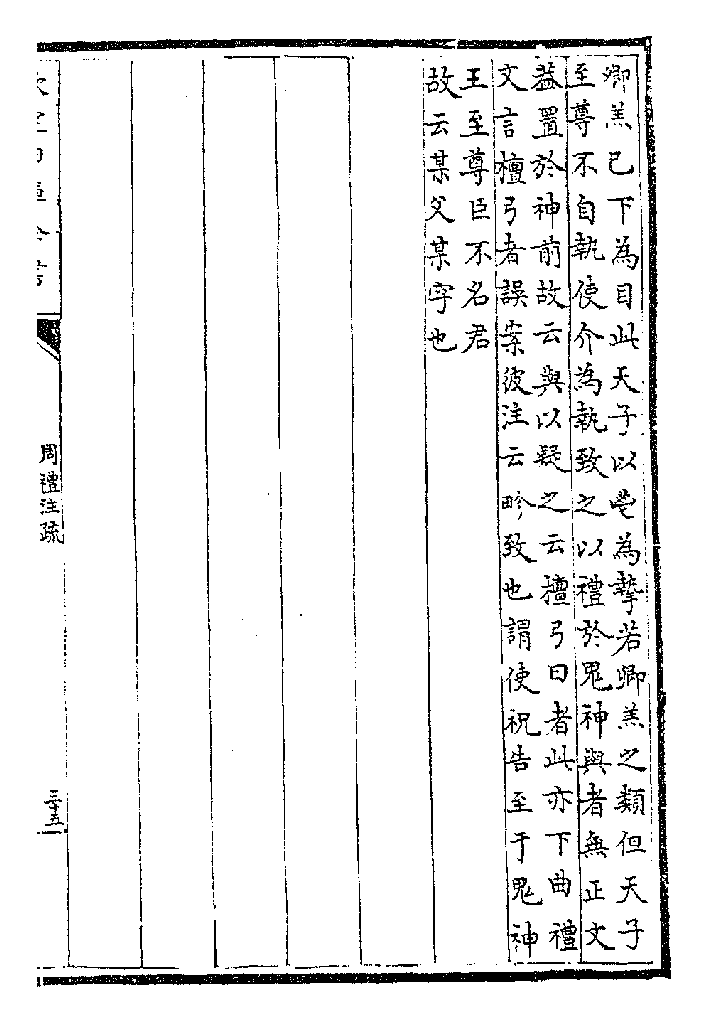 卿羔已下為目此天子以鬯為摯若卿羔之類但天子
至尊不自執使介為執致之以禮於鬼神與者無正文
葢置於神前故云與以疑之云檀弓曰者此亦下曲禮
文言檀弓者誤案彼注云畛致也謂使祝告至于鬼神
王至尊臣不名君
故云某父某字也
周禮注疏
三十五